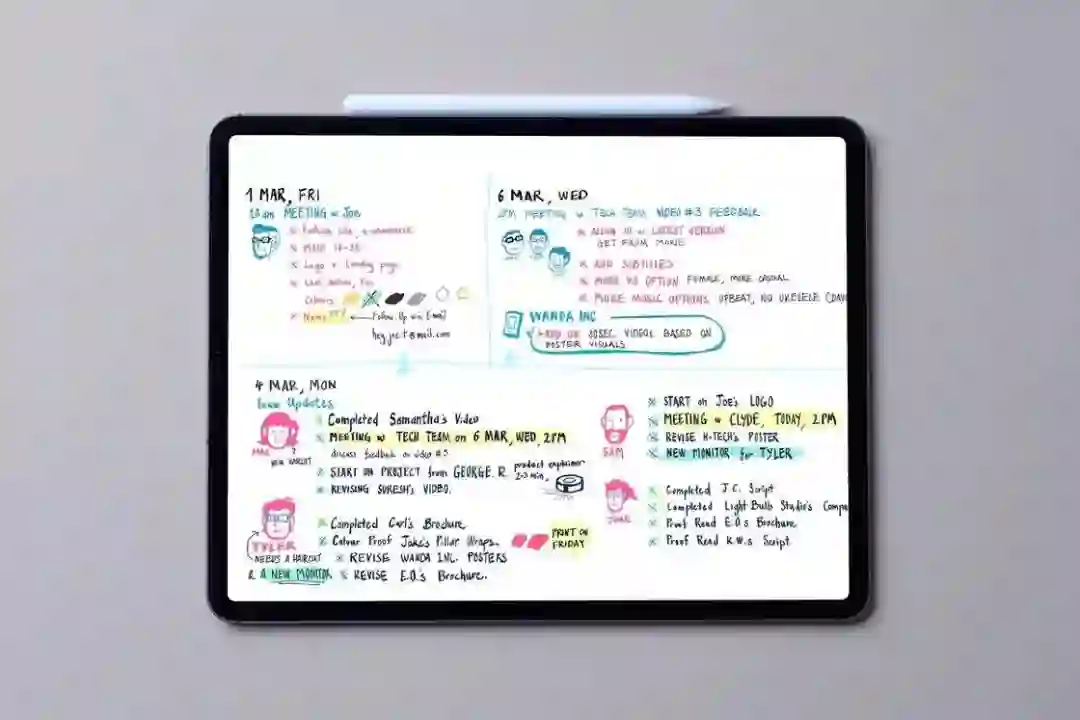 1 MAR, FRI
MEETING w Joe
Logo + Landing page
Colours:
Follow Up via Email
6 MAR, WED
2PM MEETING w TECH TEAM VIDEO #3 FEEDBACK
LATEST VERSION
GET FROM
ADD SUBTITLES
MORE VO OPTION FEMALE, MORE CASUAL
MORE MUSIC OPTIONS UPBEAT, NO UKELELE
WANDA INC
30SEC VIDEOS BASED ON
POSTER VISUALS
4 MAR, MON
Team Updates
Completed Samantha's Video
MEETING w TECH TEAM on 6 MAR, WED, 2PM
discuss feedback on video #3
NEW HAIRCUT
START ON PROJECT from GEORGE. R. product explainer
2-3 min.
REVISING SURESH'S VIDEO.
Completed Carl's Brochure
Colour Proof Jake's Pillar Wraps.
PRINT ON
FRIDAY
TYLER
NEEDS A HAIRCUT
REVISE WANDA INC. POSTERS
& A NEW MONITOR
REVISE E.O.'s Brochure.
START on Joe's LOGO
MEETING w CLYDE, TODAY, 2PM
REVISE H-TECH'S POSTER
SAM
NEW MONITOR for TYLER
Completed J.C. Script
Completed Light Bulb Studio's
Proof Read E.O.s Brochure
Proof Read K.W.s Script